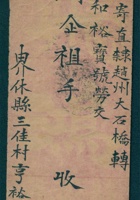 寄直隸趙州大石橋轉
和裕寶號勞交
金祖手 收
界休縣三佳村亨裕